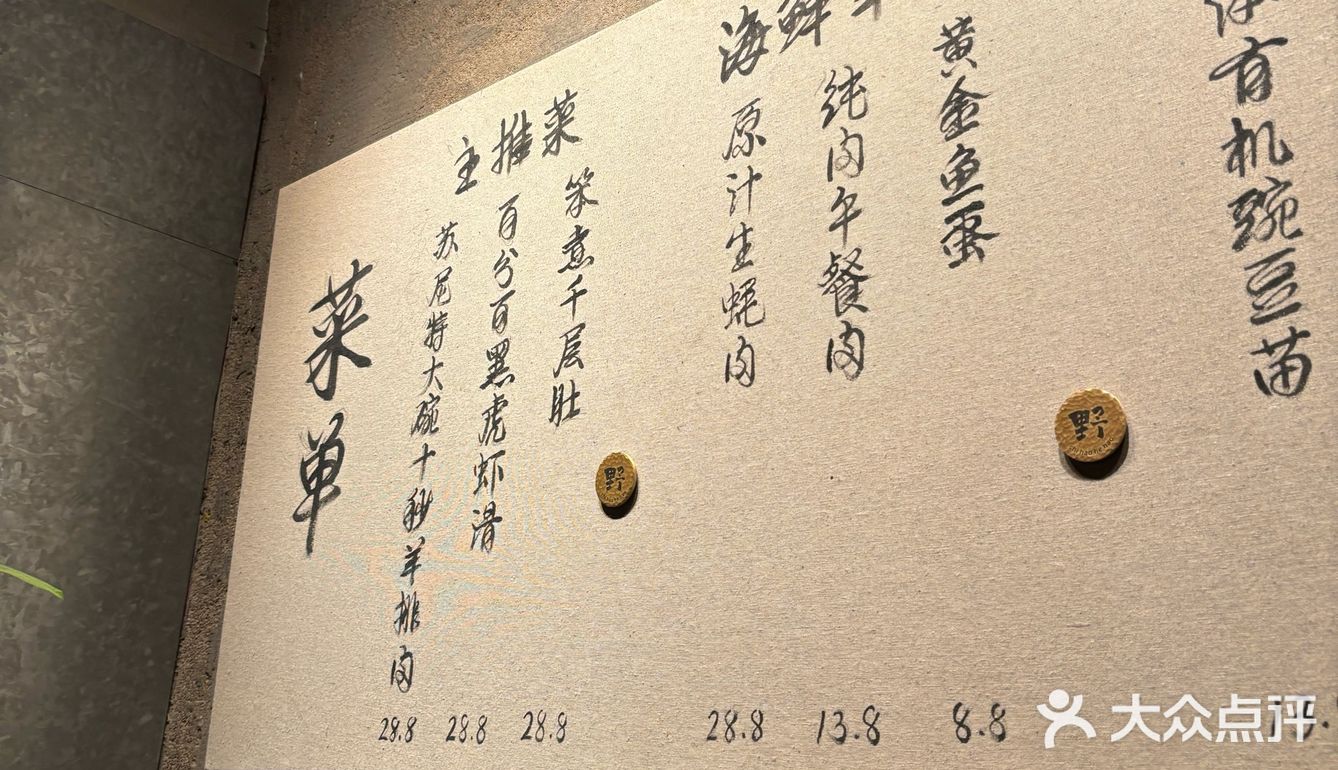 菜单
主推菜
苏尼特大碗十秒羊排肉
28.8
百分百黑虎虾滑
28.8
笨煮千层肚
28.8
海鲜
原汁生蚝肉
28.8
纯肉午餐肉
13.8
黄金鱼蛋
8.8
有机豌豆苗
野
野
大众点评